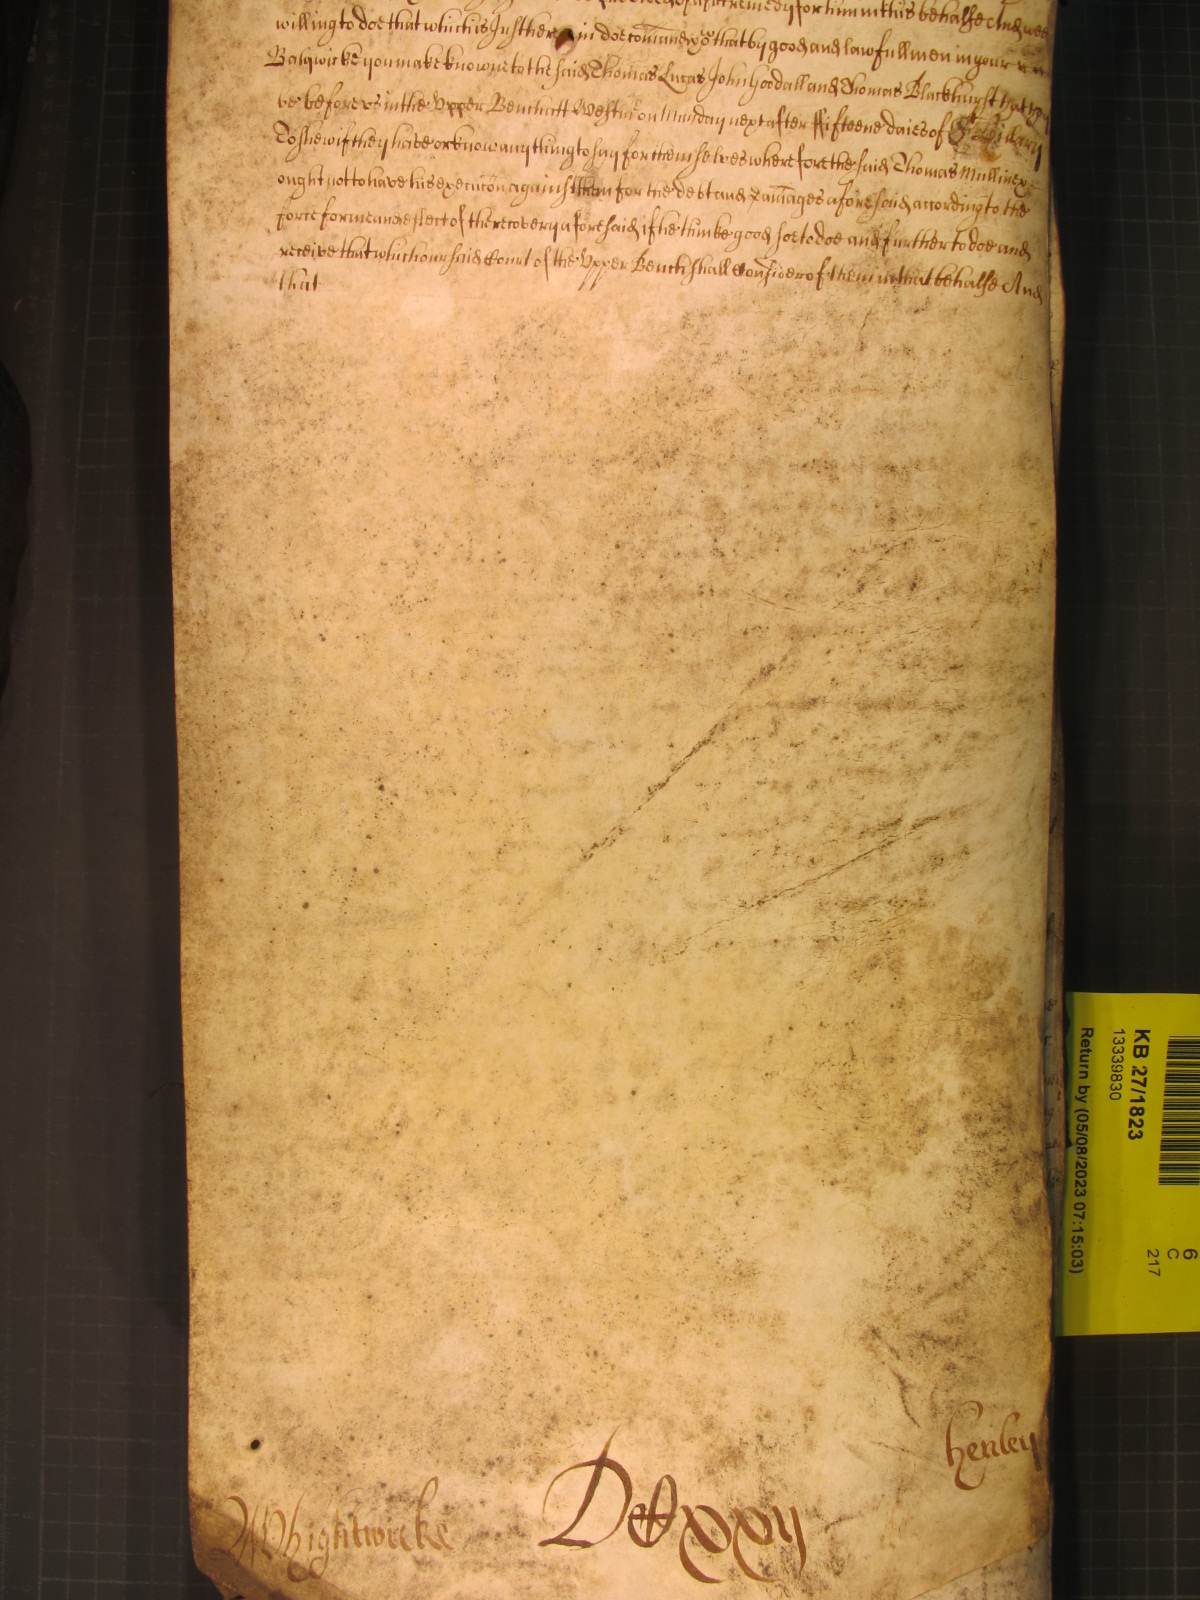 for him in this behalfe And wee
willing to doe that which is Just therein doe comand yo that by good and lawfull men in your
Balywicke you make knowne to the said Thomas Lucas John Goodall and Thomas Blackhurst that they
be before vs in the Vpper Bench att Westmr on Munday next after ffifteene daies of
To shew if they have or know any thing to say for themselves wherefore the said Thomas Mullinex
ought not to have his execucon against them for the debt and damages aforesaid acording to the
force forme and effect of the recovery aforesaid if he thinke good soe to doe and further to doe and
receive that which our said Court of the Vpper Bench shall Consider of them in that behalfe And
that
henley
Whightwicke
KB 27/1823
13339830
Return by (05/08/2023 07:15:03)
6
C
217